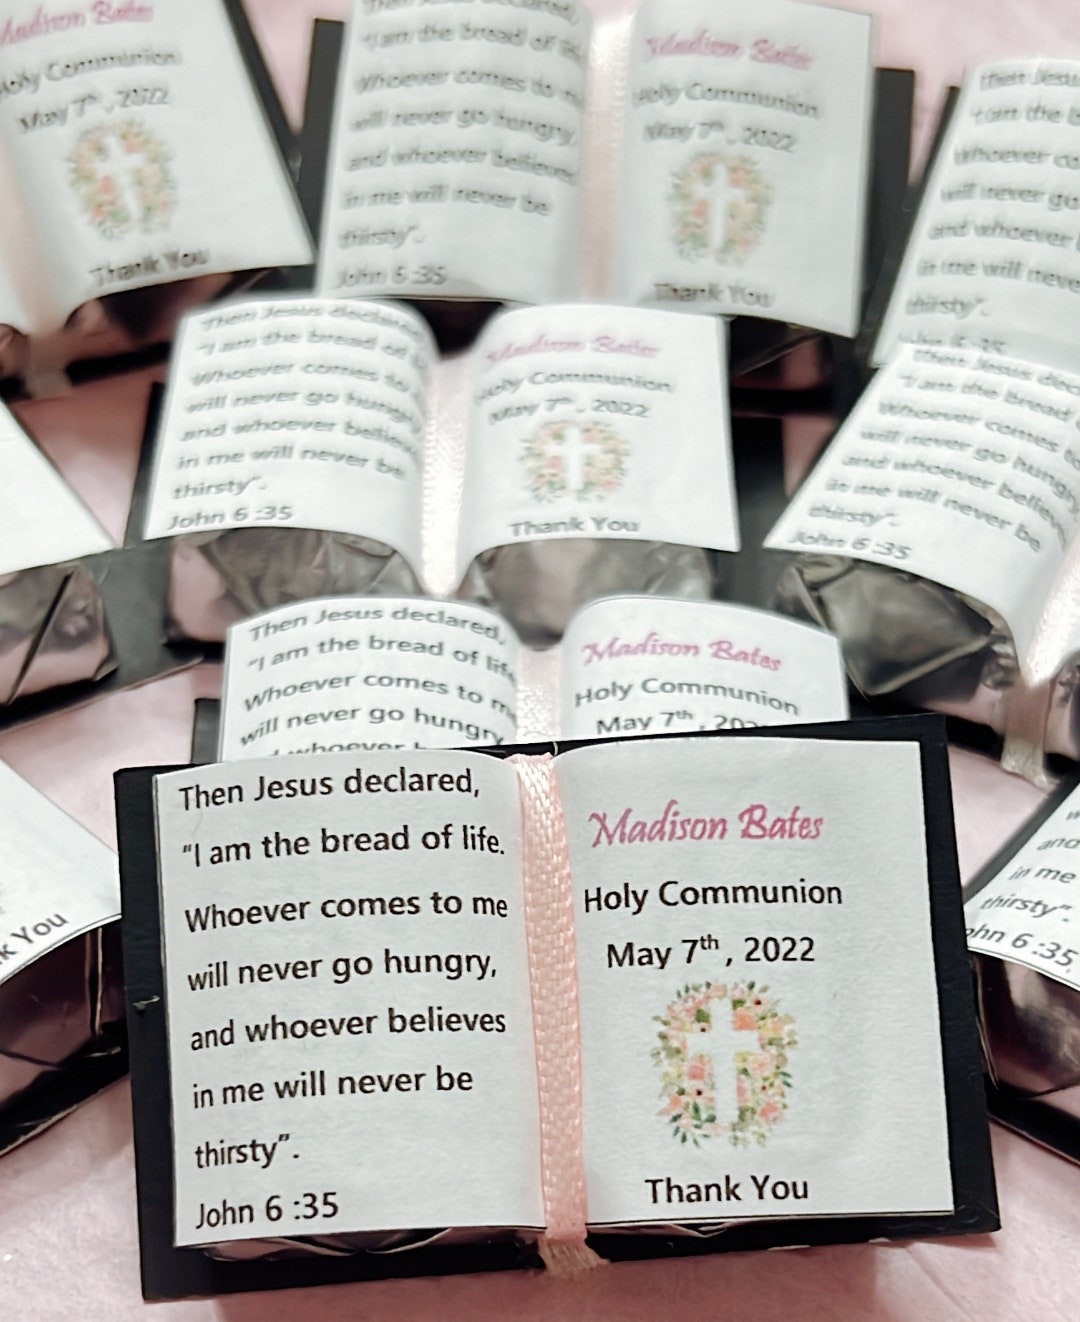 Madison Bates
Holy Communion
May 7th, 2022
Thank You
Then Jesus declared,
"I am the bread of
Whoever comes to
will never go hungry,
and whoever believes
in me will never be
thirsty".
John 6 :35
Madison Bates
Holy Communion
May 7th, 2022
Thank You
Then Jesus
"I am the
Whoever
will never go
and whoever
in me will never
thirsty".
Then Jesus declared,
"I am the bread of
Whoever comes to
will never go hungry
and whoever believes
in me will never be
thirsty".
John 6 :35
Madison Bates
Holy Communion
May 7th, 2022
Thank You
Then Jesus
"I am the bread
Whoever comes to
will never go hungry
and whoever believes
in me will never be
thirsty".
John 6 :35
Then Jesus declared,
"I am the bread of life
Whoever comes to me
will never go hungry,
whoever
Madison Bates
Holy Communion
May 7th,
You
and
in me
thirsty".
John 6 :35
Then Jesus declared,
"I am the bread of life.
Whoever comes to me
will never go hungry,
and whoever believes
in me will never be
thirsty".
John 6 :35
Madison Bates
Holy Communion
May 7th , 2022
Thank You